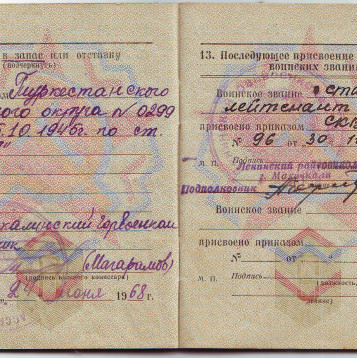 в запас или отставку
(подчеркнуть)
Туркестанского
ного округа № 0299
5.10 1946г. по ст.
халинский Горвоенком
ик
(Магарамов)
(подпись военного комиссара)
24 июня 1968 г.
13. Последующее присвоение
воинских звани
Воинское звание ста
лейтенант
присвоено приказом
№ 96 от 30
М. П. Подпись
Ленинский райвоенком
г. Махачкала
Подполковник
Воинское звание
присвоено приказом
№ от
М. П. Подпись
(должность,
звание)